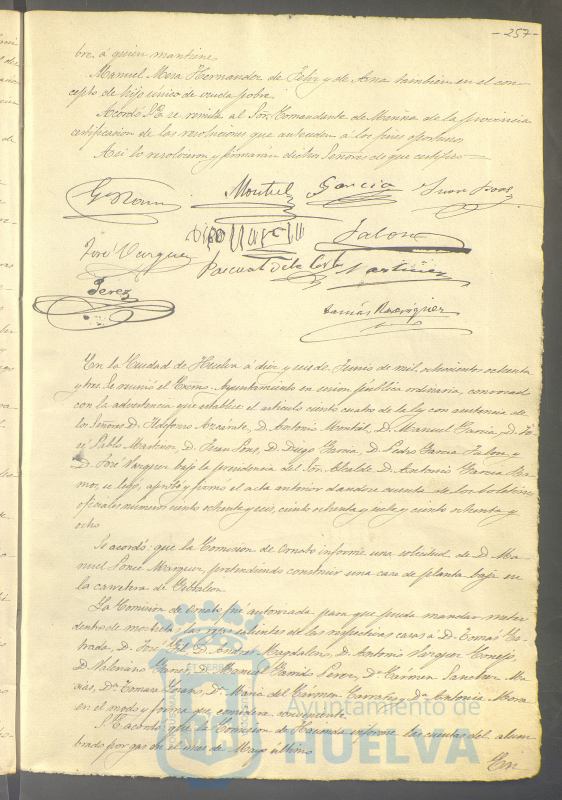 - 257 -
bre, á quien mantiene.
Manuel Mora Hernandez de Felix y de Ana tambien en el con-
cepto de hijo unico de viuda pobre.
Acordó S.E. se remita al Sor. Comandante de Marina de la provincia
certificacion de las resoluciones que anteceden á los fines oportunos.
Asi lo resolvieron y firmaron dichos Señores de que certifico.
Montiel Garcia Juan Pons
José Vazquez Jalon
Pascual Martinez
Perez
Tomás Rodriguez
En la Ciudad de Huelva á diez y seis de Junio de mil ochocientos ochenta
y tres. Se reunió el Excmo. Ayuntamiento en sesion pública ordinaria, convocada
con la advertencia que establece el articulo ciento cuatro de la ley con asistencia de
los Señores D. Ildefonso Azcarate, D. Antonio Montiel, D. Manuel Garcia, D. Jo-
sé Pablo Martinez, D. Juan Pons, D. Diego Garcia, D. Pedro Garcia Jalon y
D. José Vazquez bajo la presidencia del Sor. Alcalde D. Antonio Garcia Ra-
mos, se leyó, aprobó y firmó el acta anterior dandose cuenta de los boletines
oficiales numeros ciento ochenta y seis, ciento ochenta y siete y ciento ochenta y
ocho.
Se acordó: que la Comision de Ornato informe una solicitud de D. Ma-
nuel Ponce Marquez, pretendiendo construir una casa de planta baja en
la carretera de Gibraleon.
La Comision de Ornato fué autorizada para que pueda mandar meter
dentro de las rejas salientes de las respectivas casas á D. Tomás Es-
trada, D. José Gil, D. Andrés Magdaleno, D. Antonio Vazquez Conejo,
D. Valeriano D. Manuel Garrido Perez, Dª Cármen Sanchez Ma-
cias, Dª Tomasa Dª Maria del Cármen y Dª Antonia Mora
en el modo y forma que considere conveniente.
Se acordó, que la Comision de Hacienda informe las cuentas del alum-
brado por gas en el mes de Mayo último.
Ayuntamiento de
HUELVA